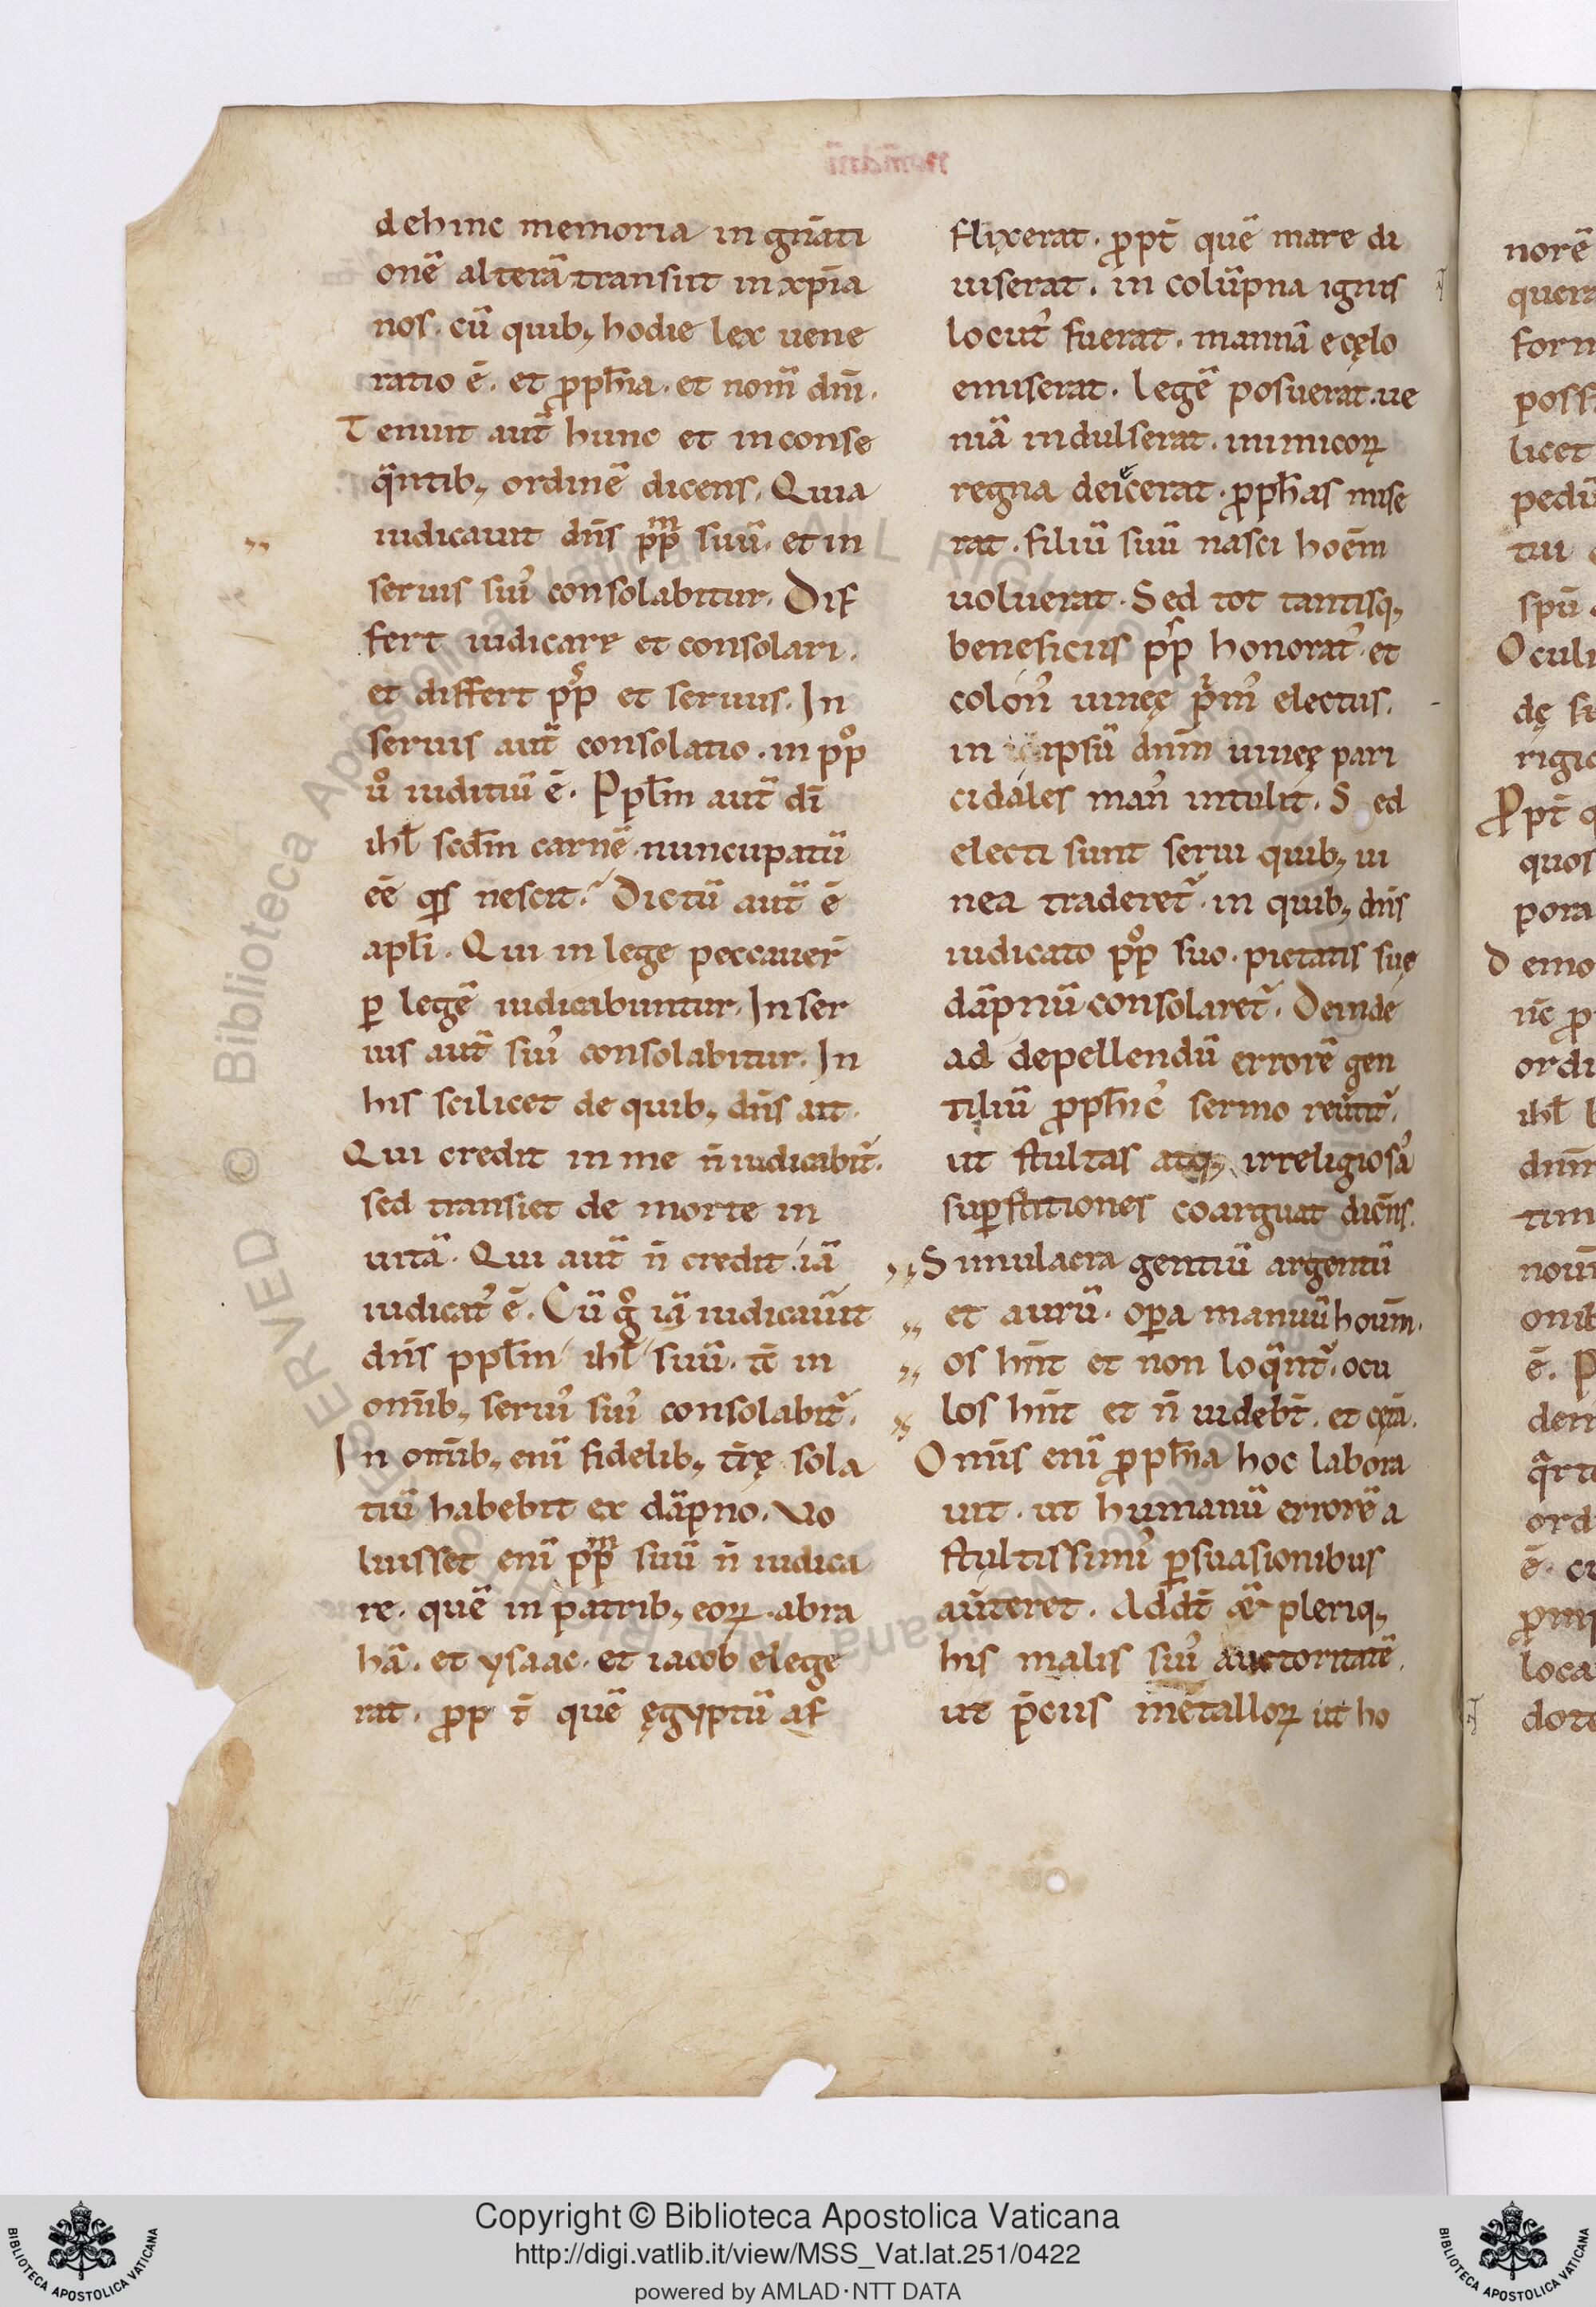 dehinc memoria in gn̄ati
onē alterā transiit in xp̄ia
nos. cū quib; hodie lex uene
ratio ē. et ꝓph̄ia. et nom̄ dn̄i.
Tenuit aut̄ hunc et in conse
q̄ntib; ordinē dicens. Quia
iudicauit dn̄s pp̄m suū. et in
seruis sui᾽ consolabitur. Dif
fert iudicare et consolari.
et differt pp̄s et seruus. In
seruis aut̄ consolatio. in pp̄o
ůiuditiū ē. Ppl̄m aut̄ dī
ihl̄ scd̄m carnē nuncupatū
ēē qͥs nescit. Dictū aut̄ ē
apl̄i. Qui in lege peccauer̄
ꝑ legē iudicabuntur. In ser
uis aut̄ sui᾽ consolabitur. In
his scilicet de quib; dn̄s ait.
Qui credit in me n̄ iudicabit᷑.
sed transiet de morte in
uitā. Qui aut̄ n̄ credit iā
iudicat᾽ ē. Cū gͦ iā iudicau̅it
dn̄s ppl̄m ihl̄ suū. t̄ in
om̄ib; serui᾽ sui᾽ consolabit᷑.
In om̄ib; enī fidelib; t̄rę sola
tiū habebit ex dāpno. Vo
luisset enī pp̄m suū n̄ iudica
re. quē in patrib; eoꝝ. abra
hā. et ysaac. et iacob elege
rat. ꝓp t̄ quē ęgyptū af
flixerat. ꝓpt̄ quē mare di
uiserat. in colūpna ignis
locut᾽ fuerat. mannā e cęlo
emiserat. legē posuerat. ue
niā indulserat. inimicoꝝ
regna deiecerat. ꝓph̄as mise
rat. filiū suū nasci hoēm
uoluerat. Sed tot tantisq;
beneficiis pp̄s honorat᾽ et
colon᾽ uineę pͥm᾽ electus.
in ipsū dn̄m uineę pari
cidales man᾽ intulit. Sed
electi sunt serui quib; ui
nea traderet᷑. in quib; dn̄s
iudicato pp̄o suo. pietatis suę
dāpnū consolaret᷑. Deinde
ad depellendū errorē gen
tiliū ꝓph̄ic᾽ sermo reu̅tit᷑.
ut stultas atq; irreligiosa᾽
suꝑstitiones coarguat dicēns.
Simulacra gentiū argentū
et aurū. oꝑa manuū hoūm.
os hn̄t et non loq̄nt᷑. ocu
los hn̄t et n̄ uidebt̄. et cęta.
Omīs enī ꝓph̄ia hoc labora
uit. ut humanū errorē a
stultissimi᾽ ꝑsuasionibus
au̅teret. Addt̄ plerīq;
his malis sui᾽ auctoritatē.
ut p̄cius metalloꝝ ut ho
norē
quera
form
poss
licet
pedū
tui
spū
Oculi
dę
rigid
Ꝓpt̄ q
quos
pora
Demo
ordi
ihl̄
dn̄m
tim
onib
ē. P
den
ord
loca
dote
Copyright © Biblioteca Apostolica Vaticana
http://digi.vatlib.it/view/MSS_Vat.lat.251/0422
powered by AMLAD·NTT DATA
BIBLIOTECA APOSTOLICA VATICANA
BIBLIOTECA APOSTOLICA VATICANA